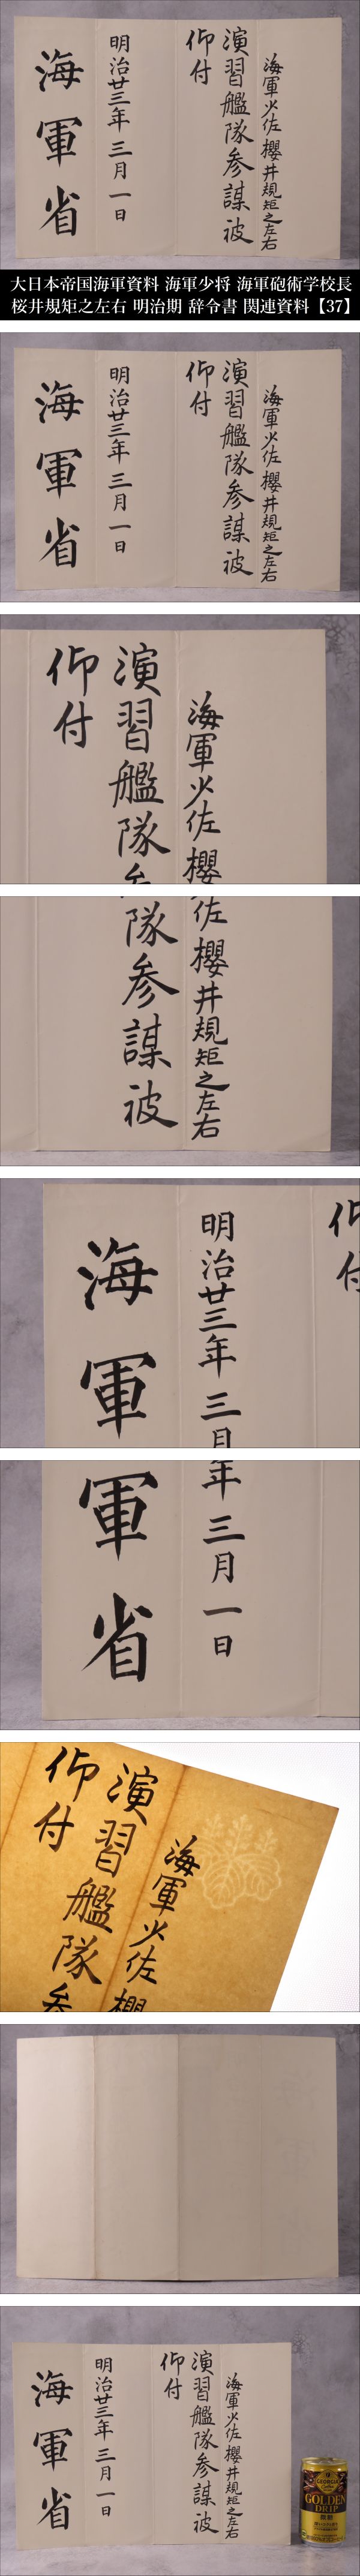 海軍少佐 櫻井規矩之左右
演習艦隊参謀被
仰付
明治廿三年 三月一日
海軍省
大日本帝国海軍資料 海軍少将 海軍砲術学校長
桜井規矩之左右 明治期 辞令書 関連資料【37】
海軍少佐 櫻井規矩之左右
演習艦隊参謀被
仰付
明治廿三年 三月一日
海軍省
海軍少佐櫻
演習艦隊参
仰付
佐櫻井規矩之左右
隊参謀被
仰付
明治廿三年 三月
海軍
年 三月一日
軍省
海軍少佐櫻
演習艦隊参
仰付
海軍少佐 櫻井規矩之左右
演習艦隊参謀被
仰付
明治廿三年 三月一日
海軍省
GEORGIA
GOLDEN
DRIP
微糖